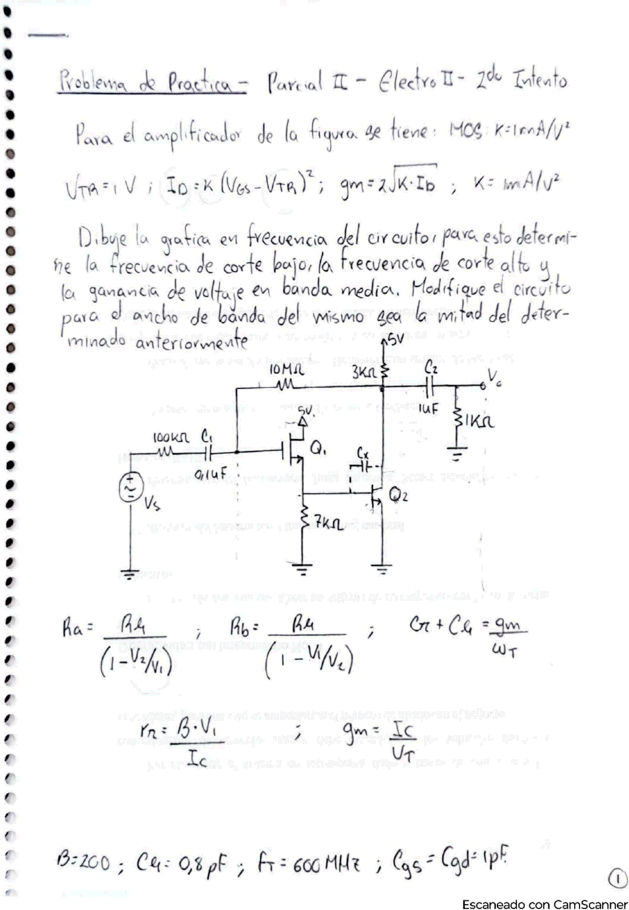 Problema de Practica - Parcial II - Electro II - 2do Intento
Para el amplificador de la figura se tiene: MOS: K=1mA/V²
VTR=1V ; ID=K(VGS-VTR)² ; gm=2√K·ID ; K=1mA/V²
Dibuje la grafica en frecuencia del circuito, para esto determi-
ne la frecuencia de corte bajo, la frecuencia de corte alto y
la ganancia de voltaje en banda media. Modifique el circuito
para el ancho de banda del mismo sea la mitad del deter-
minado anteriormente
5V
10MΩ 3KΩ C2 Vo
5V 1uF 1KΩ
100KΩ C1 Q1 Cx
0,1uF Q2
Vs 7KΩ
Ra = RM/(1-V2/V1) ; Rb = RM/(1-V1/V2) ; Cπ + CM = gm/ωT
rπ = B·V1/Ic ; gm = Ic/UT
B=200 ; CM=0,8pF ; fT=600MHz ; Cgs=Cgd=1pF.
1
Escaneado con CamScanner